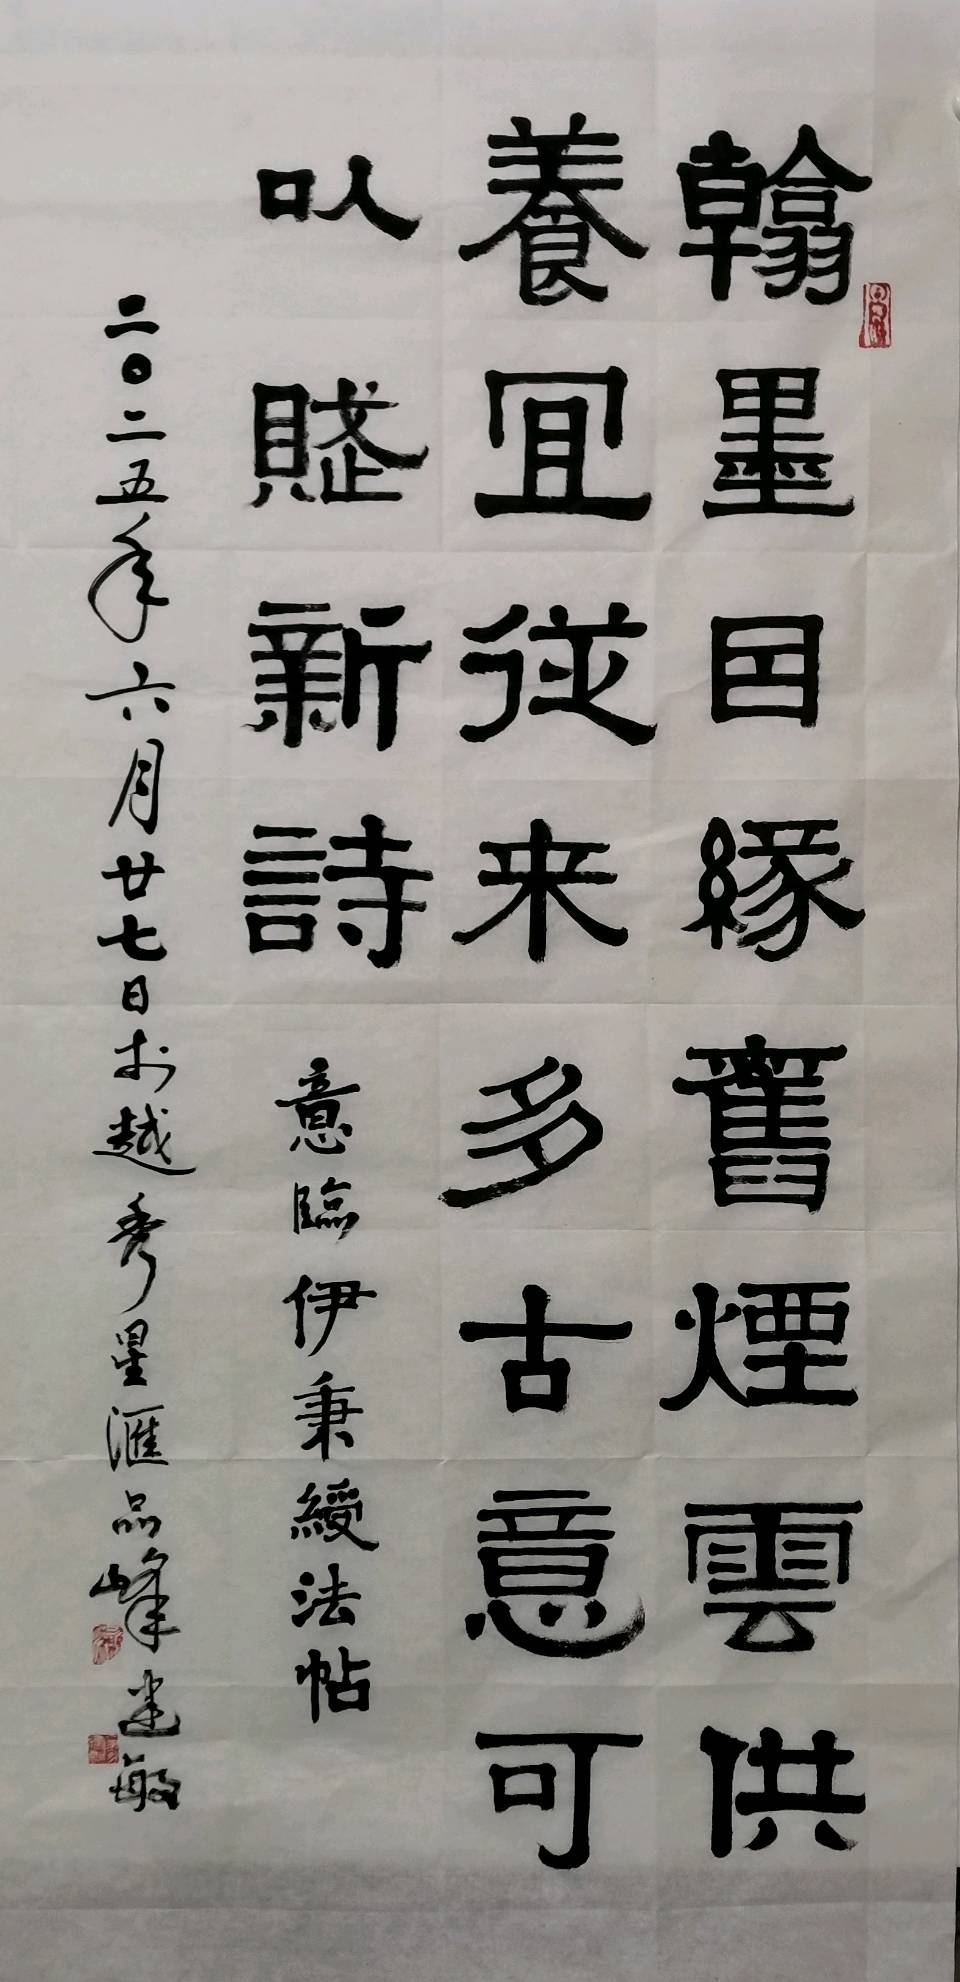 翰墨因緣舊煙雲供
養宜從来多古意可
以賦新詩 意臨伊秉綬法帖
二〇二五年六月廿七日於越秀星滙品峰建敏